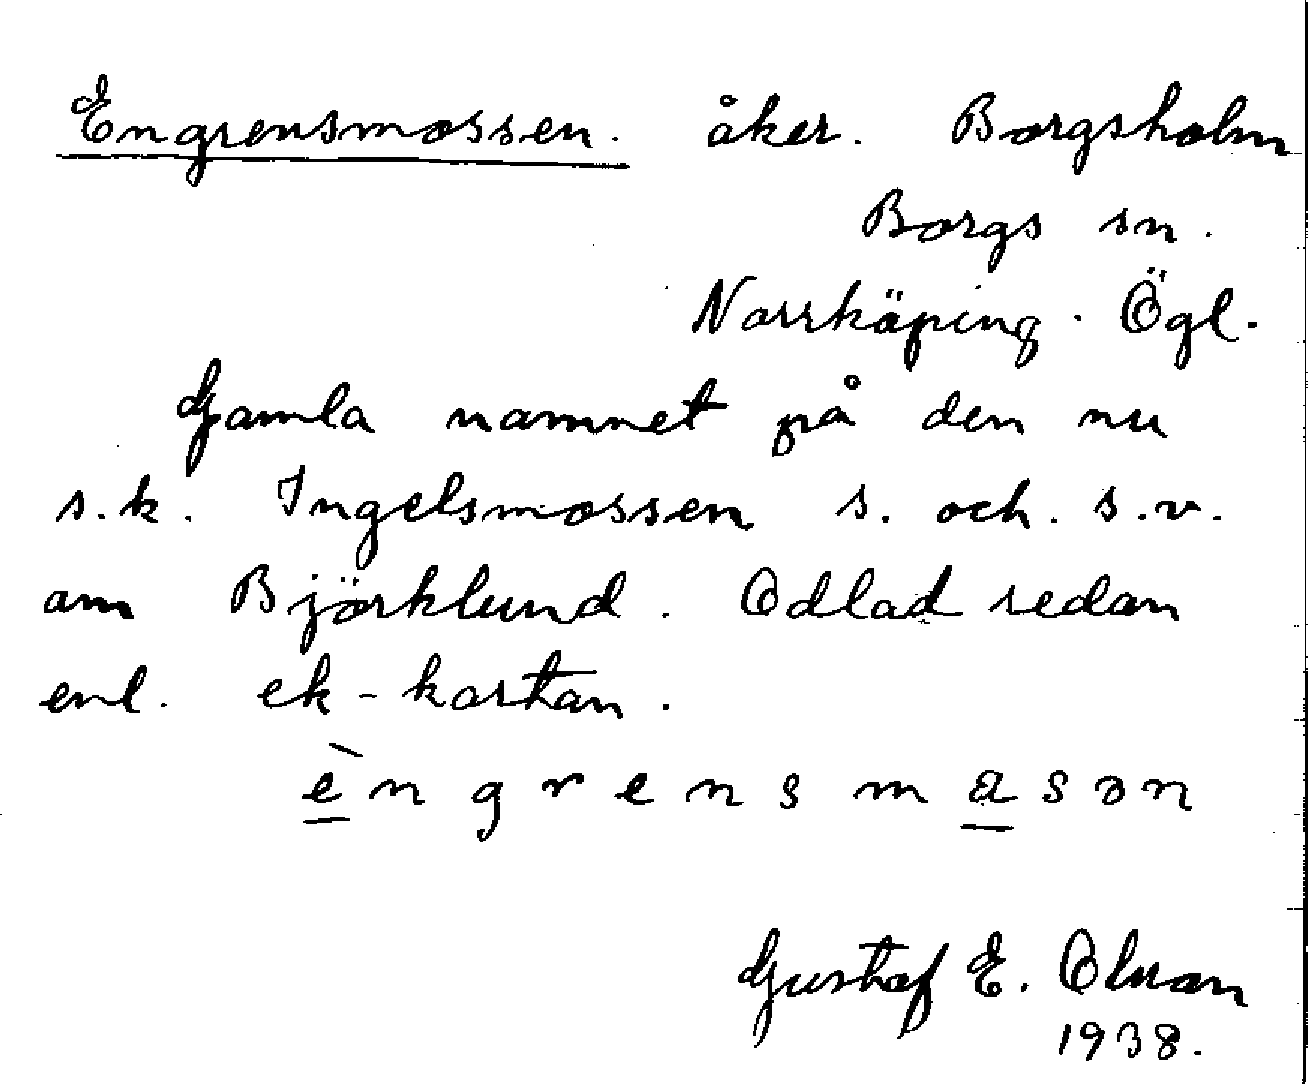 Engrensmossen. åker. Borgsholm
Borgs sn.
Norrköping. Ögl.
Gamla namnet på den nu
s.k. Ingelsmossen s. och. s.v.
om Björklund. Odlad redan
enl. ek-kartan.
èngrensmasən
Gustaf E. Olsson
1938.